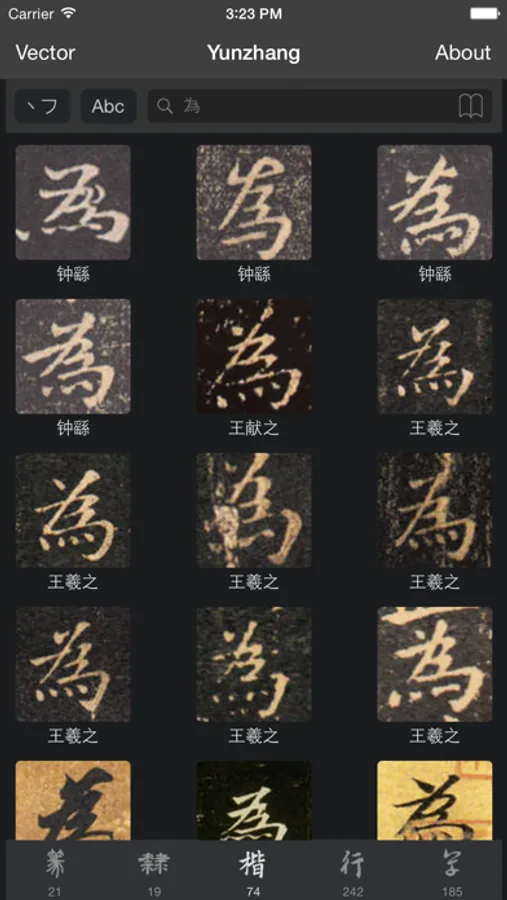 Carrier 3:23 PM
Vector Yunzhang About
丶フ Abc 為
為 為 為
钟繇 钟繇 钟繇
為 為 為
钟繇 王献之 王羲之
為 為 為
王羲之 王羲之 王羲之
為 為 為
王羲之 王羲之 王羲之
為 為 為
篆 隸 楷 行 草
21 19 74 242 185